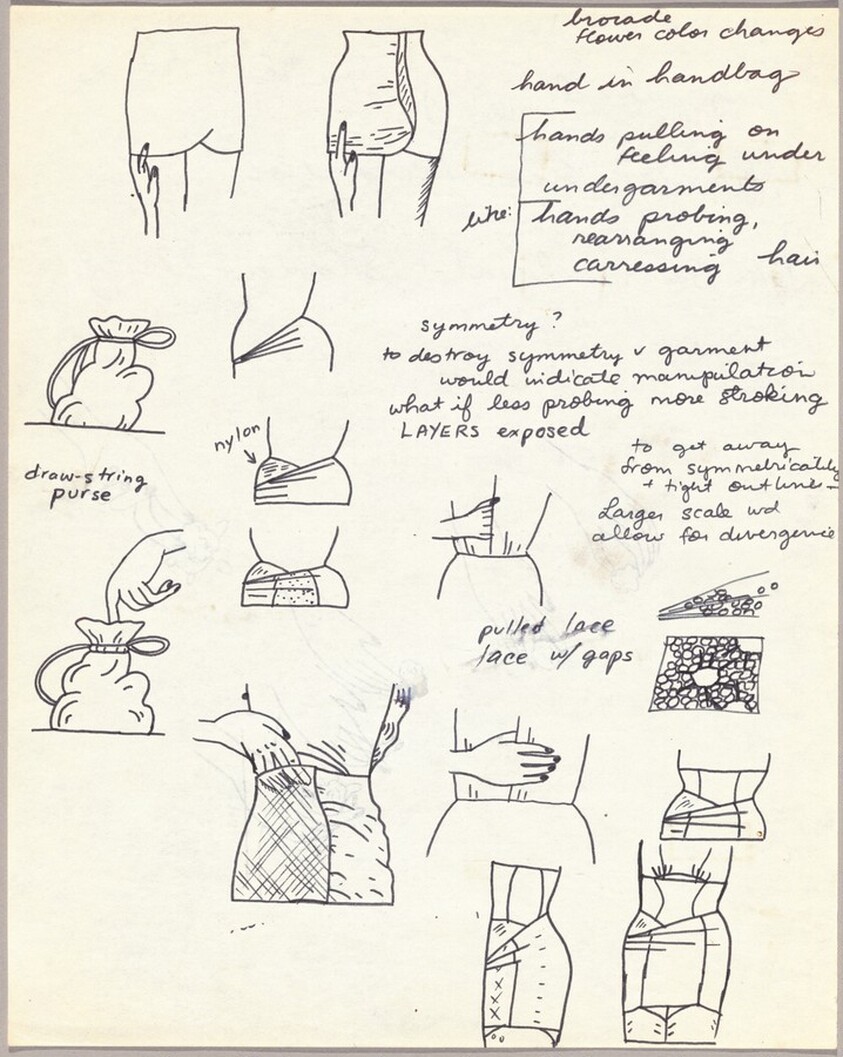 brocade
flower color changes
hand in handbag
hands pulling on
feeling under
undergarments
like:
hands probing,
rearranging
carressing hair
symmetry?
to destroy symmetry v garment
would indicate manipulation
what if less probing more stroking
LAYERS exposed
nylon
to get away
from symmetricality
+ tight outlines -
draw-string
purse
Larger scale wd
allow for divergence
pulled lace
lace w/ gaps